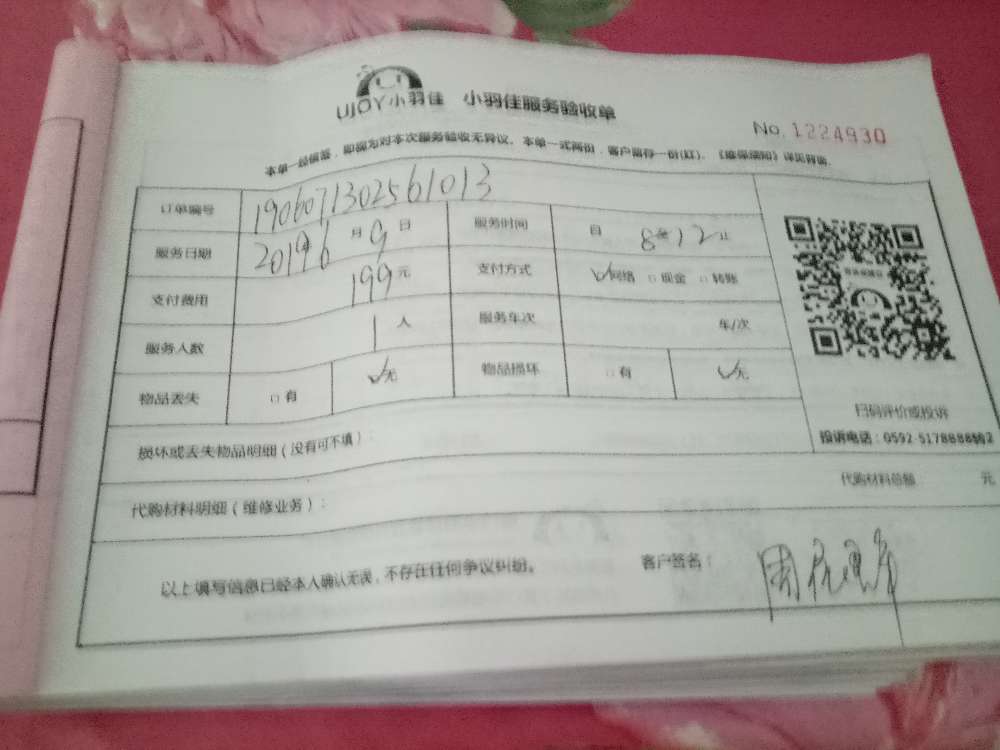 UJOY小羽佳 小羽佳服务验收单
No. 1224930
本单一经签署，即视为对本次服务验收无异议。本单一式两份，客户留存一份(红)。《维保须知》详见背面。
订单编号 190607130256 1013
服务日期 2019年6月9日 服务时间 自 8至12止
支付费用 199元 支付方式 ✓网络 □现金 □转账
服务人数 1人 服务车次 车/次
物品丢失 □有 ✓无 物品损坏 □有 ✓无
扫码评价或投诉
投诉电话：0592-5178888转2
损坏或丢失物品明细（没有可不填）：
代购材料明细（维修业务）： 代购材料总额 元
以上填写信息已经本人确认无误，不存在任何争议纠纷。 客户签名：